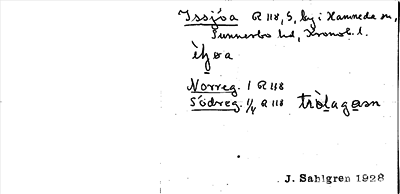 Issjöa R 118, S, by i Hamneda sn,
Sunnerbo hd, Kronob. l.
Norreg. 1 R 118
Södreg. 1/4 R 118 tròlagasn
J. Sahlgren 1928